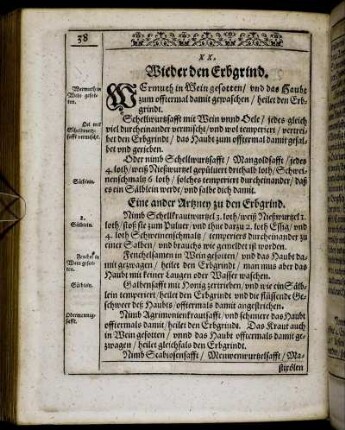 38
XX.
Wieder den Erbgrind.
Wermuth in
Wein gesot-
ten.
WErmuth in Wein gesotten / vnd das Haubt
zum offtermal damit gewaschen / heilet den Erb-
grindt.
Oel mit
Schelwurtz-
safft vermischt.
Schelwurtzsafft mit Wein vnnd Oele / jedes gleich
viel durcheinander vermischt / vnd wol temperiert / vertrei-
bet den Erbgrindt / das Haubt zum offtermal damit gesal-
bet vnd gerieben.
Oder nimb Schellwurtzsafft / Mangoldsafft / jedes
4. loth / weiß Nießwurtzel gepülvert drithalb loth / Schwei-
Sälblein.
nenschmaltz 6 loth / solches temperiert durcheinander / daß
es ein Sälblein werde / vnd salbe dich damit.
Eine ander Artzney zu den Erbgrind.
2.
Sälblein.
Nimb Schellkrautwurtzel 3. loth / weiß Nießwurtzel 2.
loth / stoß sie zum Pulver / vnd thue dartzu 2. loth Essig / vnd
4. loth Schweinenschmaltz / temperiert durcheinander zu
einer Salben / vnd brauchs wie gemeldet ist worden.
Fenchel in
Wein gesot-
ten.
Fenchelsamen in Wein gesotten / vnd das Haubt da-
mit gezwagen / heilet den Erbgrindt / man mus aber das
Haubt mit keiner Laugen oder Wasser waschen.
Sälblein.
Galbensafft mit Honig zertrieben / vnd wie ein Sälb-
lein temperiert / heilet den Erbgrindt vnd die flüssende Ge-
schwer des Haubts / offtermals damit angestrichen.
Odermennig-
safft.
Nimb Agrimonienkrautsafft / vnd schmiere das Haubt
offtermals damit / heilet den Erbgrindt. Das Kraut auch
in Wein gesotten / vnnd das Haubt offtermals damit ge-
zwagen / heilet gleichfals den Erbgrindt.
Nimb Scabiosensafft / Menwenwurtzelsafft / Ma-
stixölen